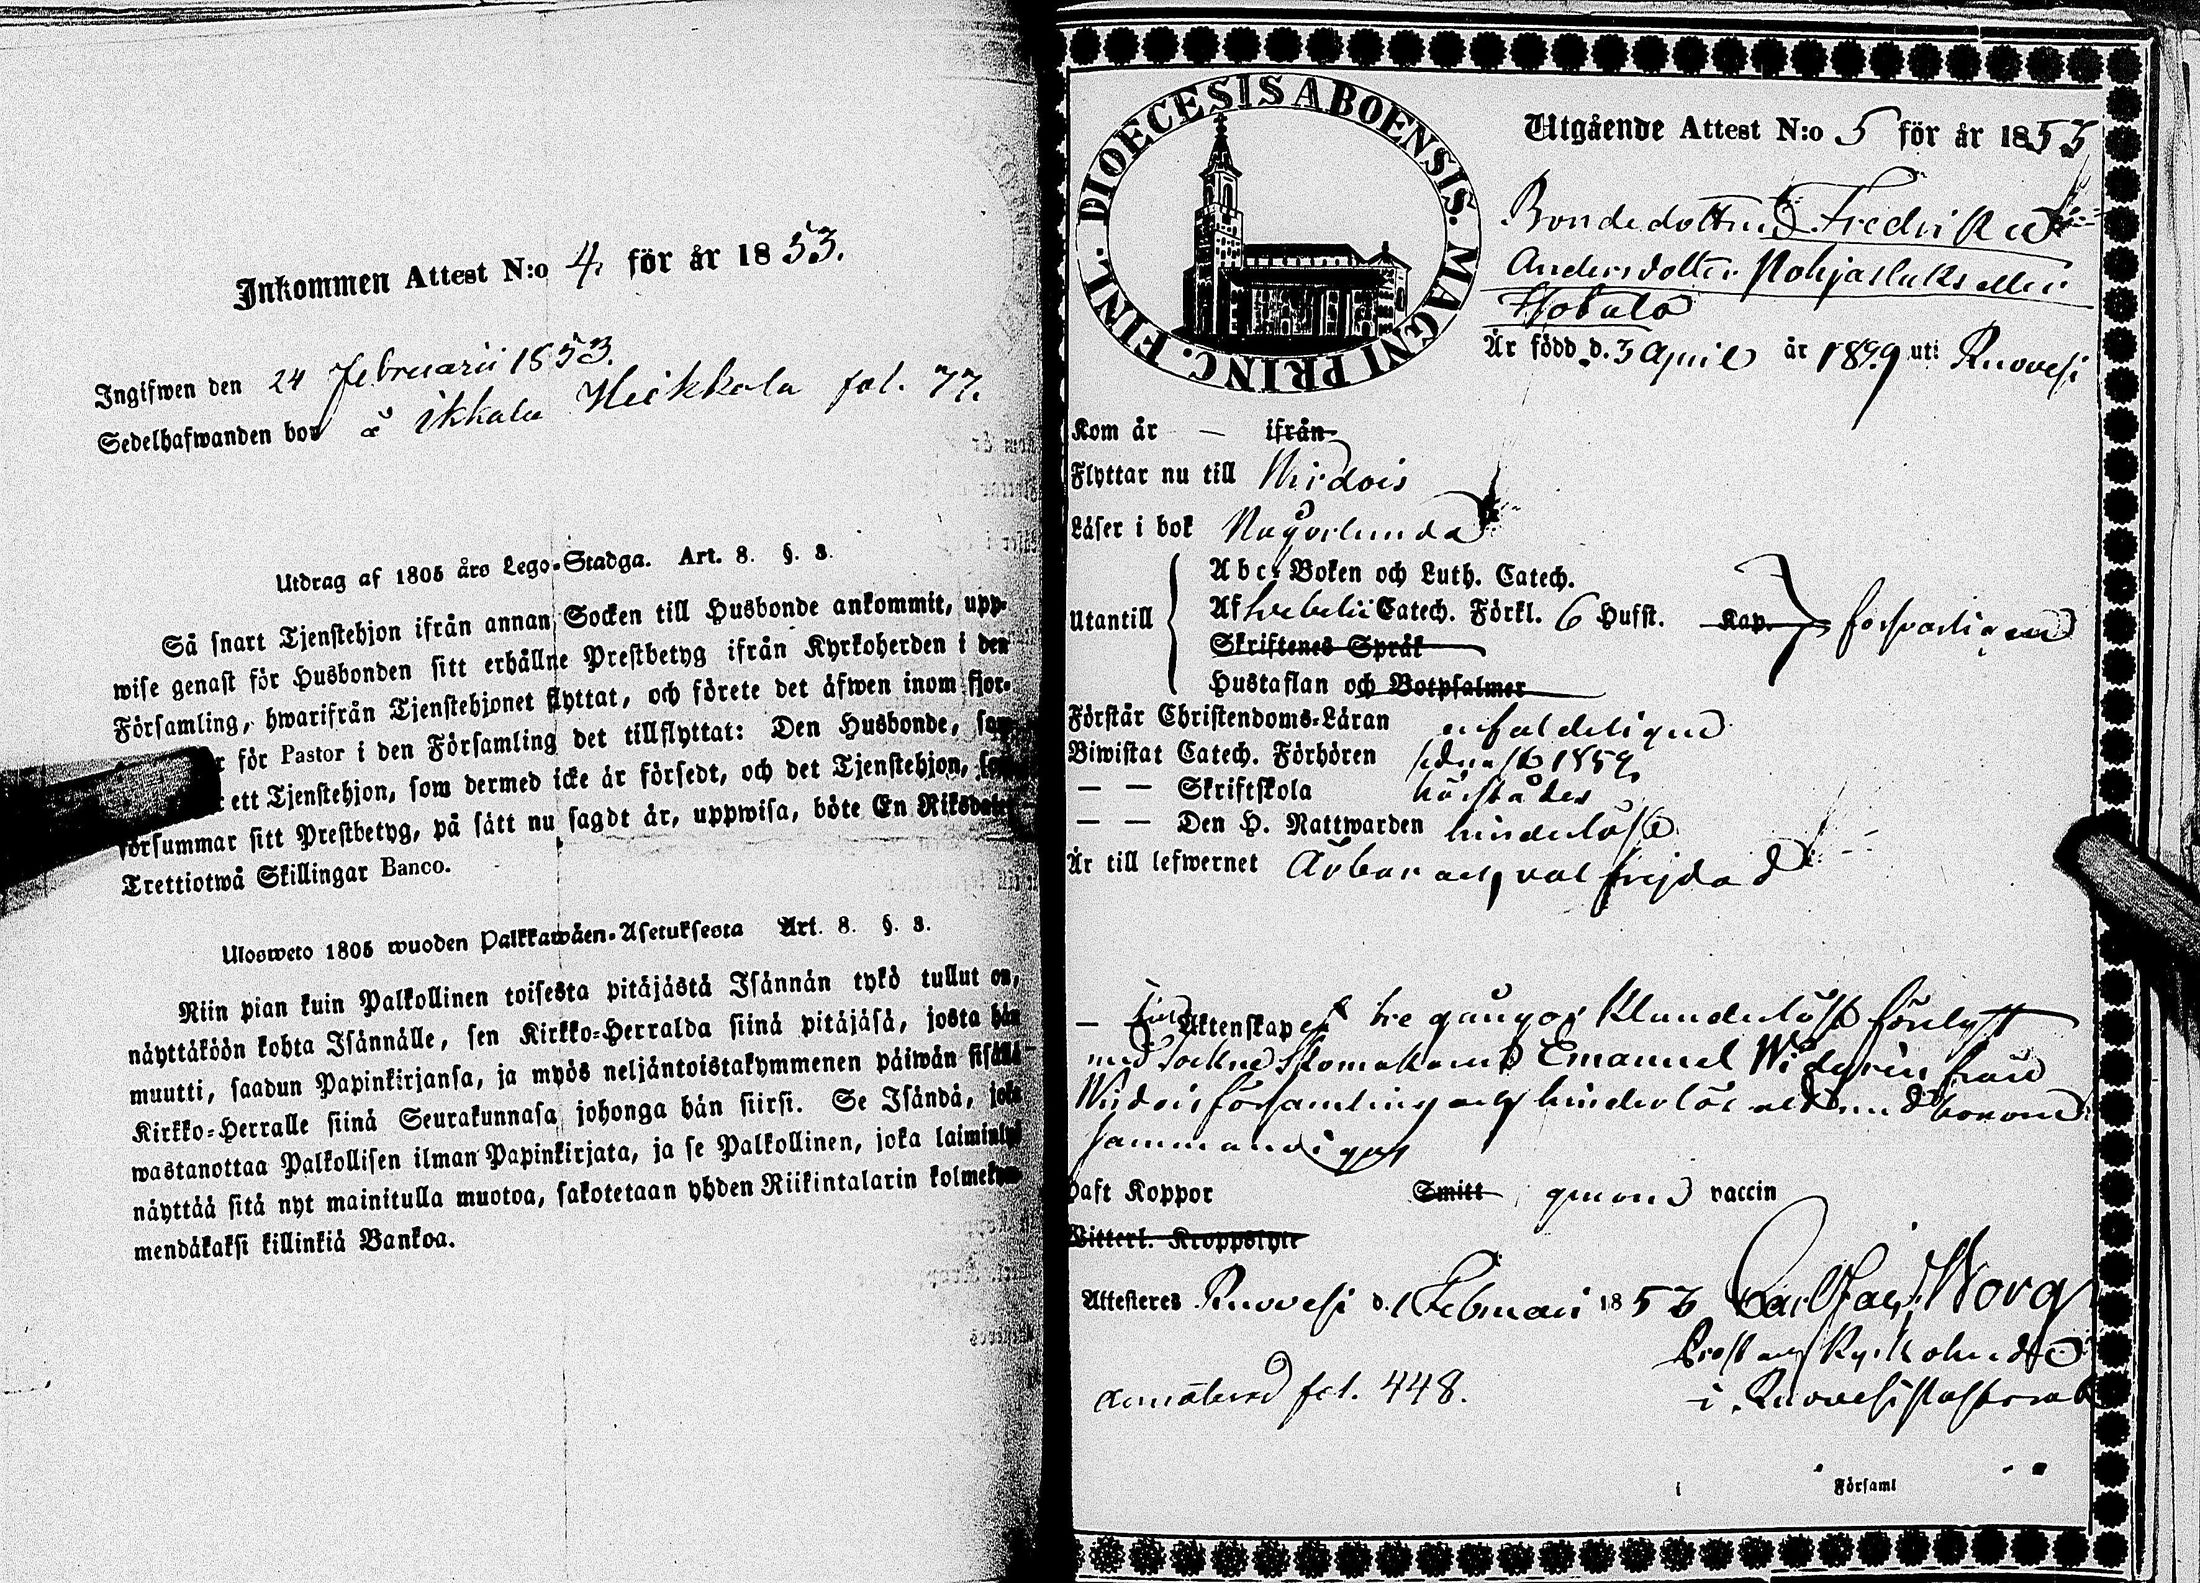 Inkommen Attest N:o 4, för år 1853.
Ingifwen den 24 Februarii 1853.
Sedelhafwanden bor å Ikkala Heikkola fol. 77.
Utdrag af 1805 års Lego-Stadga. Art. 8. §. 3.
Så snart Tjenstehjon ifrån annan Socken till Husbonde ankommit, upp-
wise genast för Husbonden sitt erhållne Prestbetyg ifrån Kyrkoherden i den
Församling, hwarifrån Tjenstehjonet flyttat, och förete det äfwen inom fjor-
för Pastor i den Församling det tillflyttat: Den Husbonde, som
ett Tjenstehjon, som dermed icke är försedt, och det Tjenstehjon, som
försummar sitt Prestbetyg, på sätt nu sagdt är, uppwisa, böte En Riksdaler
Trettiotwå Skillingar Banco.
Ulosweto 1805 wuoden Palkkawäen-Asetuksesta Art. 8. §. 3.
Niin pian kuin Palkollinen toisesta pitäjästä Isännän tykö tullut on,
näyttäköön kohta Isännälle, sen Kirkko-Herralda siinä pitäjäsä, josta hän
muutti, saadun Papinkirjansa, ja myös neljäntoistakymmenen päiwän sisällä
Kirkko-Herralle siinä Seurakunnasa johonga hän siirsi. Se Isändä, joka
wastanottaa Palkollisen ilman Papinkirjata, ja se Palkollinen, joka laiminlyö
näyttää sitä nyt mainitulla muotoa, sakotetaan yhden Riikintalarin kolmekym-
mendäkaksi killinkiä Bankoa.
DIOECESIS ABOENSIS. MAGNI PRINC. FINL.
Utgående Attest N:o 5 för år 1853
Bondedottren Fredrika
Andersdotter Pohjaslaks eller
Är född d. 3 April år uti Ruovesi
Kom år — ifrån
Flyttar nu till Wirdois
Läser i bok Någorlunda
Utantill
Abc-Boken och Luth. Catech.
Af Svebelii Catech. Förkl. 6 Hufst. Kap. försvarligen
Skriftenes Språk
Hustaflan och Botpsalmer
Förstår Christendoms-Läran enfaldeligen
Biwistat Catech. Förhören
— — Skriftskola härstädes
— — Den H. Nattwarden hinderlöst
Är till lefwernet ärbar och väl frejdad
— Till Äktenskap är tre gånger klanderlöst förelyst
med Emanuel Widgrén från
Wirdois församling och hinderlös at med honom
sammanvigas
Haft Koppor Smitt genom vaccin
Witterl. Kroppslyte
Attesteras Ruovesi d. 1 Februari 1853 Borg
Prost och Kyrkoherde
i Ruovesi Pastorat
Annoterad fol. 448.
i Församl